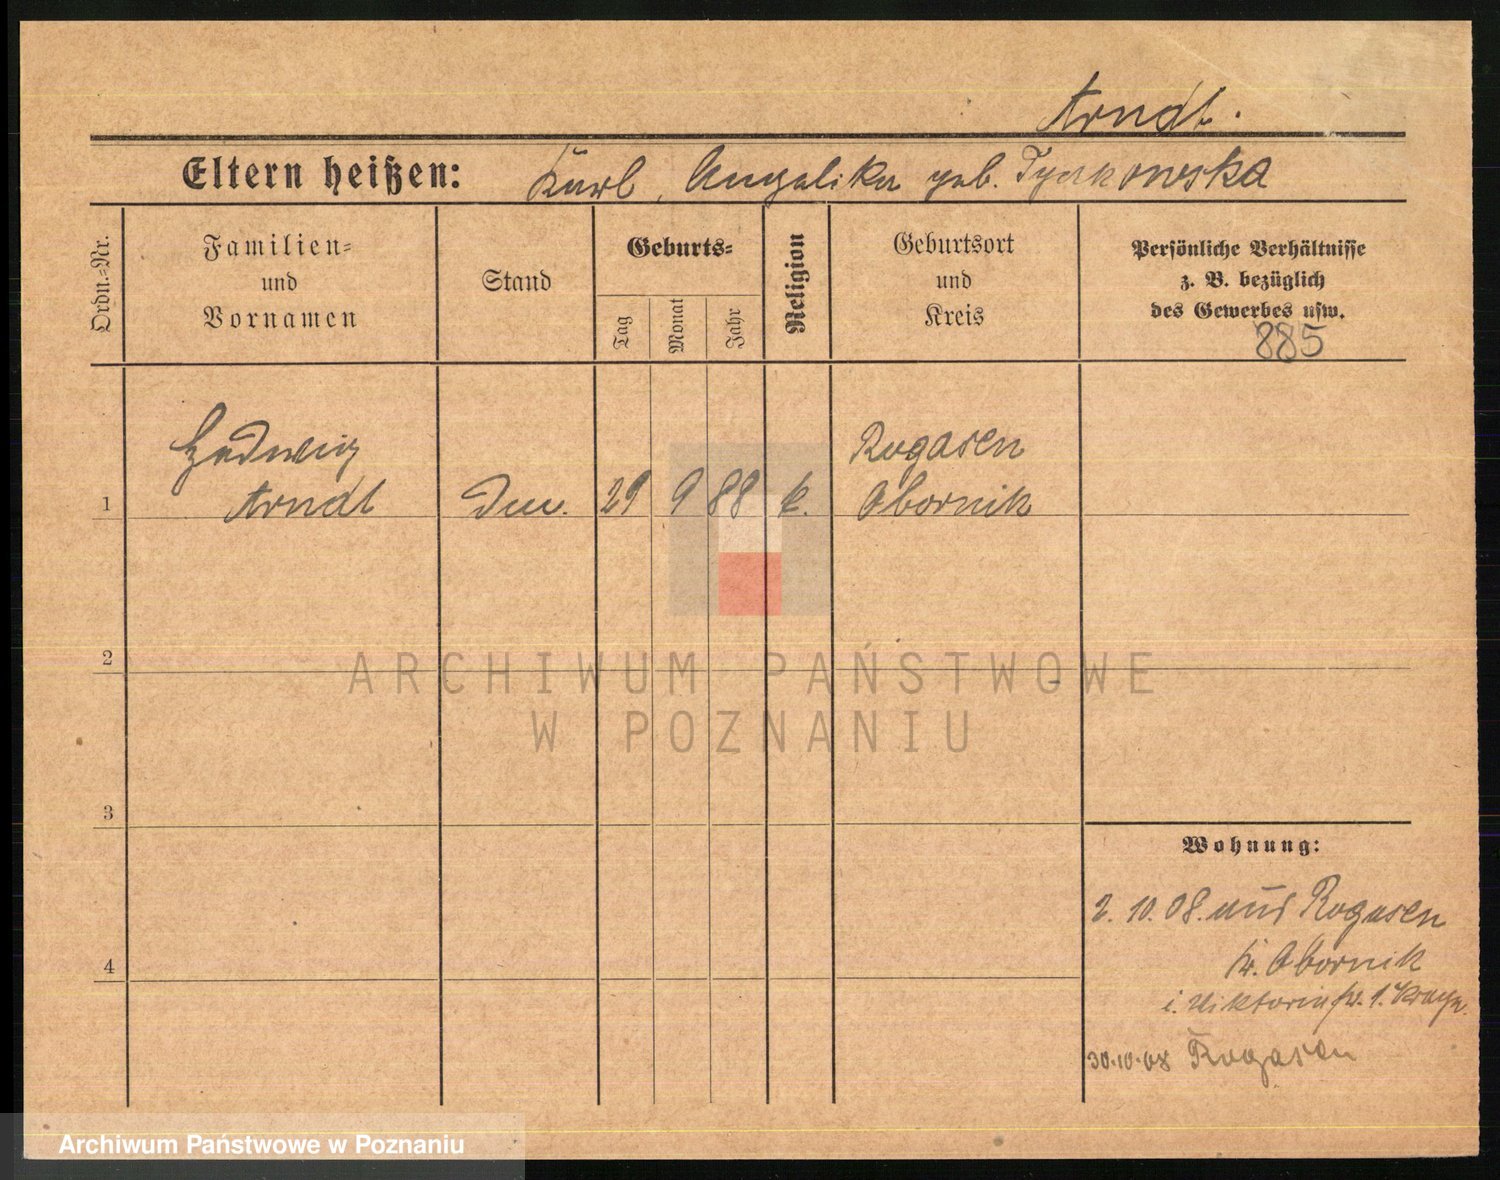 Arndt.
Eltern heißen: Karl, Angelika geb. Tyrkowska
Ordn.-Nr.
Familien-
und
Vornamen
Stand
Geburts-
Tag
Monat
Jahr
Religion
Geburtsort
und
Kreis
Persönliche Verhältnisse
z. B. bezüglich
des Gewerbes usw.
885
Hedwig
Rogasen
1 Arndt 29 9 88 k. Obornik
2
ARCHIWUM PAŃSTWOWE
W POZNANIU
3
Wohnung:
2. 10. 08. aus Rogasen
Kr. Obornik
i. Viktoriastr. 1.
4
30.10.08 Rogasen
Archiwum Państwowe w Poznaniu